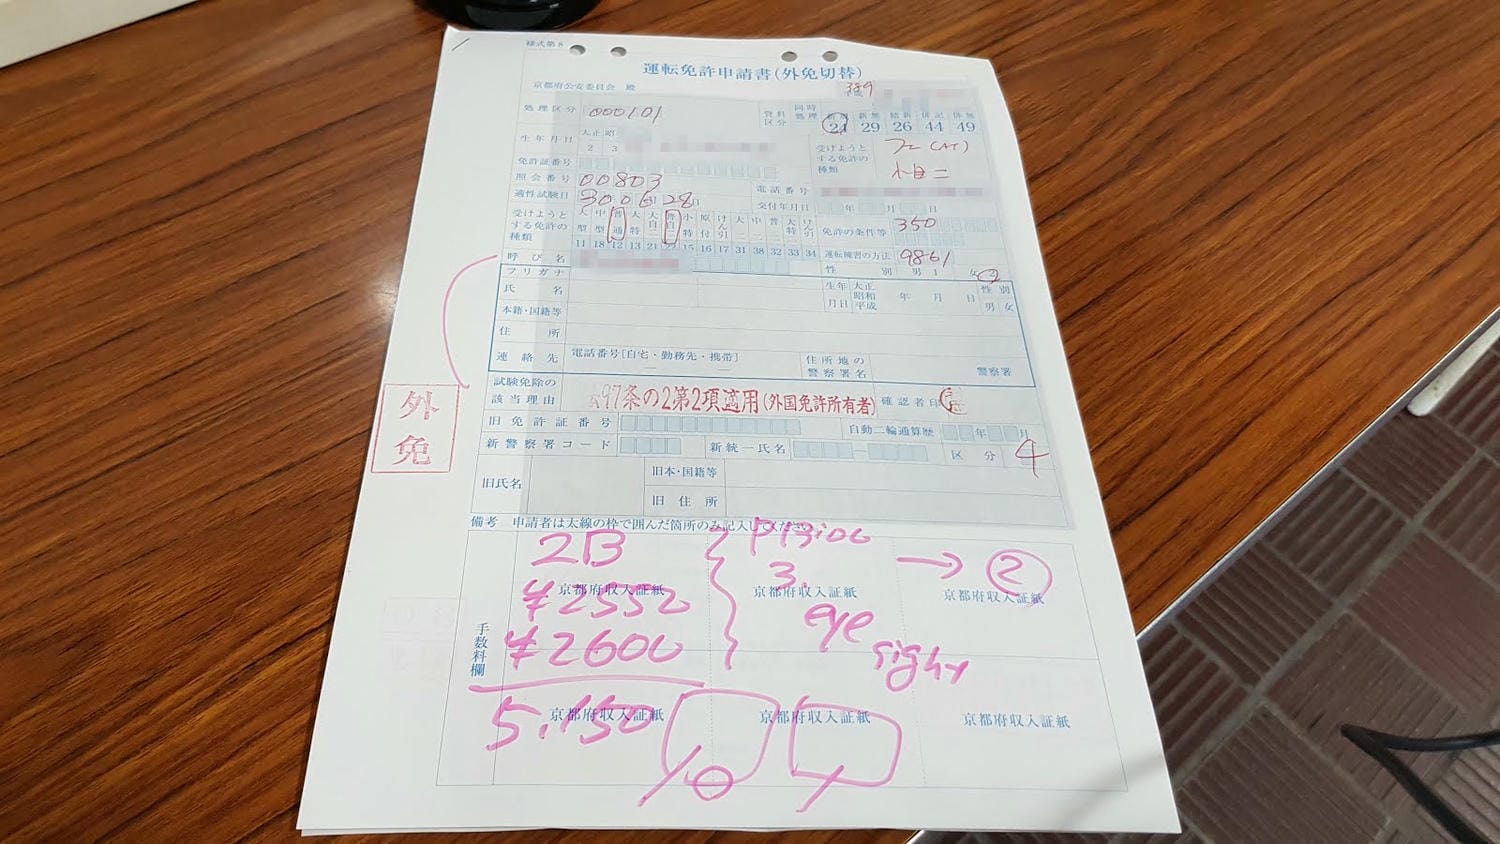 様式第8
運転免許申請書(外免切替)
京都府公安委員会 殿
処理区分 000101
資料区分 同時処理 24 新無 29 結新 26 併記 44 併無 49
生年月日 大正 2 昭 3
受けようとする免許の種類 フ二(AT)
免許証番号
照会番号 00803
電話番号
適性試験日 30 06 28日
交付年月日 年 月 日
受けようとする免許の種類 大型 中型 普通 大特 大自二 普自二 小特 原付 けん引 大二 中二 普二 大特二 けん引二
11 18 12 13 21 22 15 16 17 31 38 32 33 34
免許の条件等 350
運転練習の方法 9861
呼び名
性別 男 1 女 2
フリガナ
氏名
生年月日 大正 昭和 平成 年 月 日
性別 男 女
本籍・国籍等
住所
連絡先 電話番号[自宅・勤務先・携帯]
住所地の警察署名 警察署
試験免除の該当理由 97条の2第2項適用(外国免許所有者)
確認者印
外免
旧免許証番号
自動二輪通算歴 年 月
新警察署コード
新統一氏名
区分 4
旧氏名
旧本・国籍等
旧住所
備考 申請者は太線の枠で囲んだ箇所のみ記入してください
手数料欄
2B
京都府収入証紙
¥2550
¥2600
5.150
京都府収入証紙
3.
京都府収入証紙
eye
sight
→ ②
京都府収入証紙
京都府収入証紙
京都府収入証紙